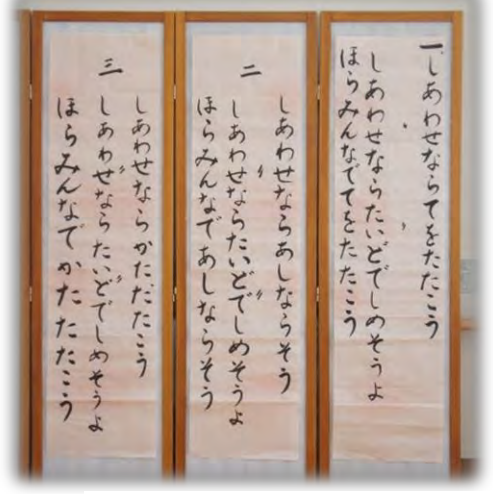 一、しあわせならてをたたこう
しあわせならたいどでしめそうよ
ほらみんなでてをたたこう
二
しあわせならあしならそう
しあわせならたいどでしめそうよ
ほらみんなであしならそう
三
しあわせならかたたたこう
しあわせならたいどでしめそうよ
ほらみんなでかたたたこう